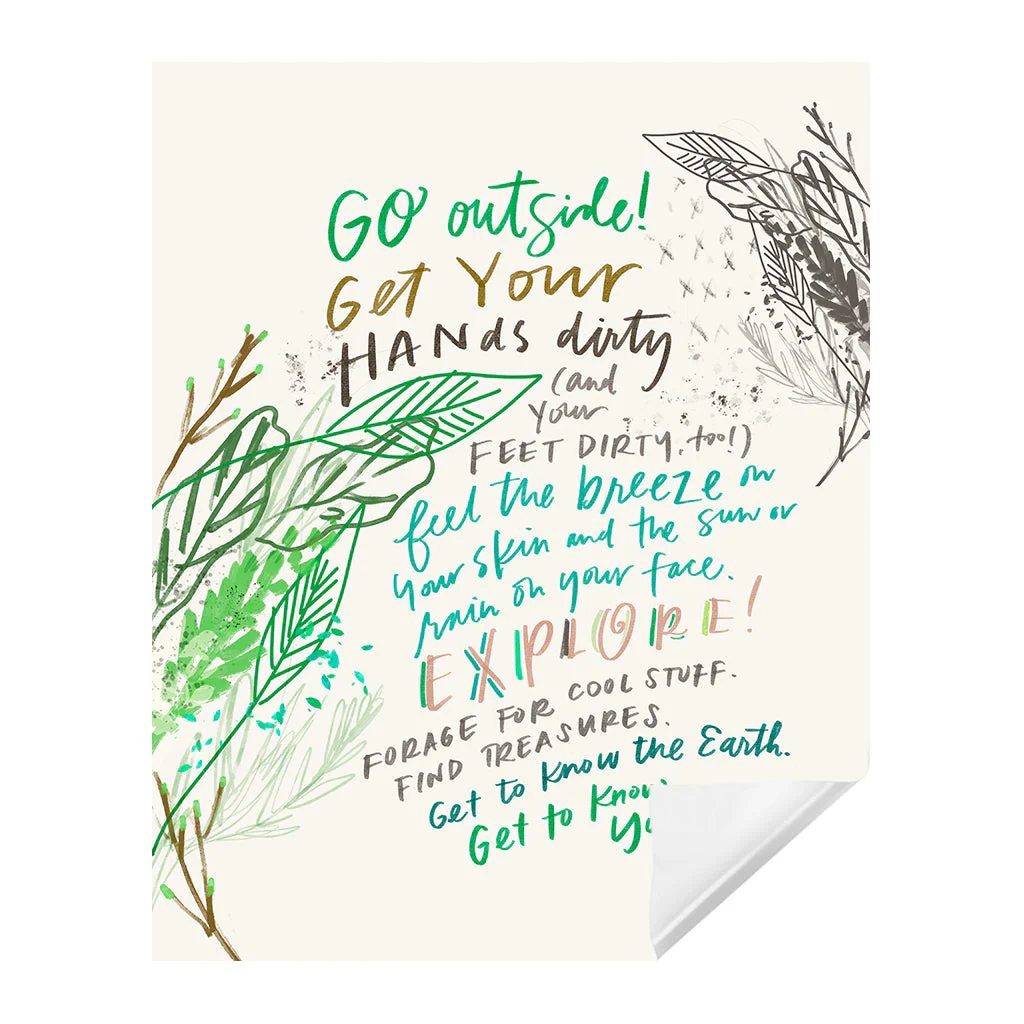 GO outside!
Get Your
HANds dirty
(and
your
FEET DIRTY, too!)
feel the breeze on
your skin and the sun or
rain on your face.
EXPLORE!
FORAGE FOR COOL STUFF.
FIND TREASURES.
Get to know the Earth.
Get to know